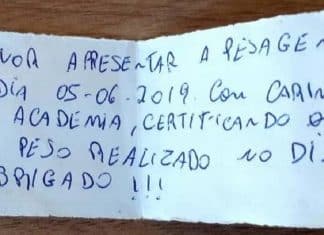 VOR APRESENTAR A PESAGEM
DIA 05-06-2019 COM CARIN
ACADEMIA, CERTIFICANDO O
PESO REALIZADO NO DI
BRIGADO !!!